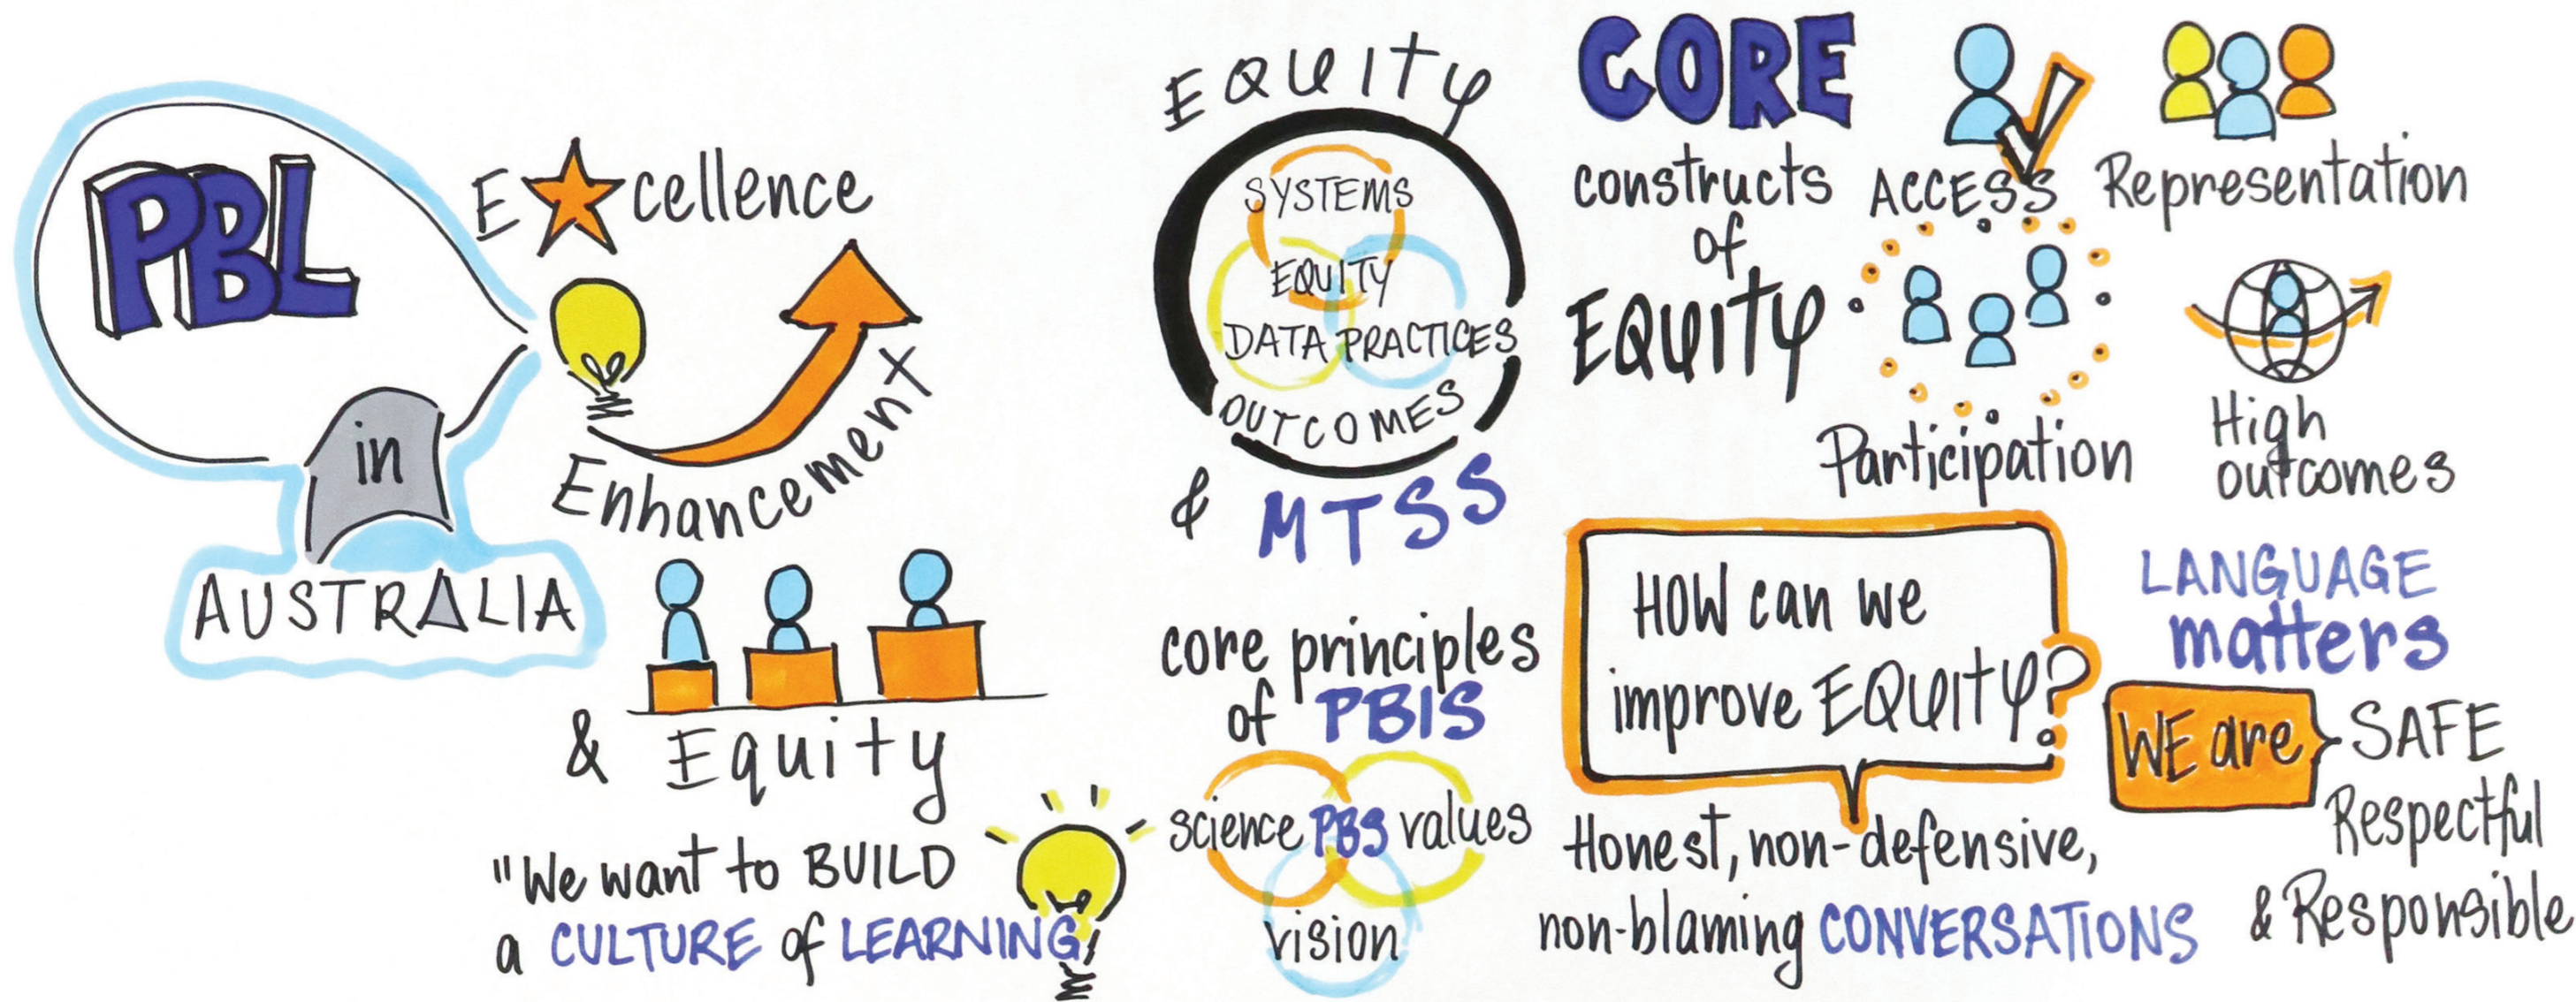 PBL
in
AUSTRALIA
E cellence
Enhancement
& Equity
"We want to BUILD
a CULTURE of LEARNING!
EQUITY
SYSTEMS
EQUITY
DATA PRACTICES
OUTCOMES
& MTSS
core principles
of PBIS
science PBS values
vision
CORE
constructs
of
EQUITY
ACCESS
Representation
Participation
High
outcomes
HOW can we
improve EQUITY?
Honest, non-defensive,
non-blaming CONVERSATIONS
LANGUAGE
matters
WE are SAFE
Respectful
& Responsible